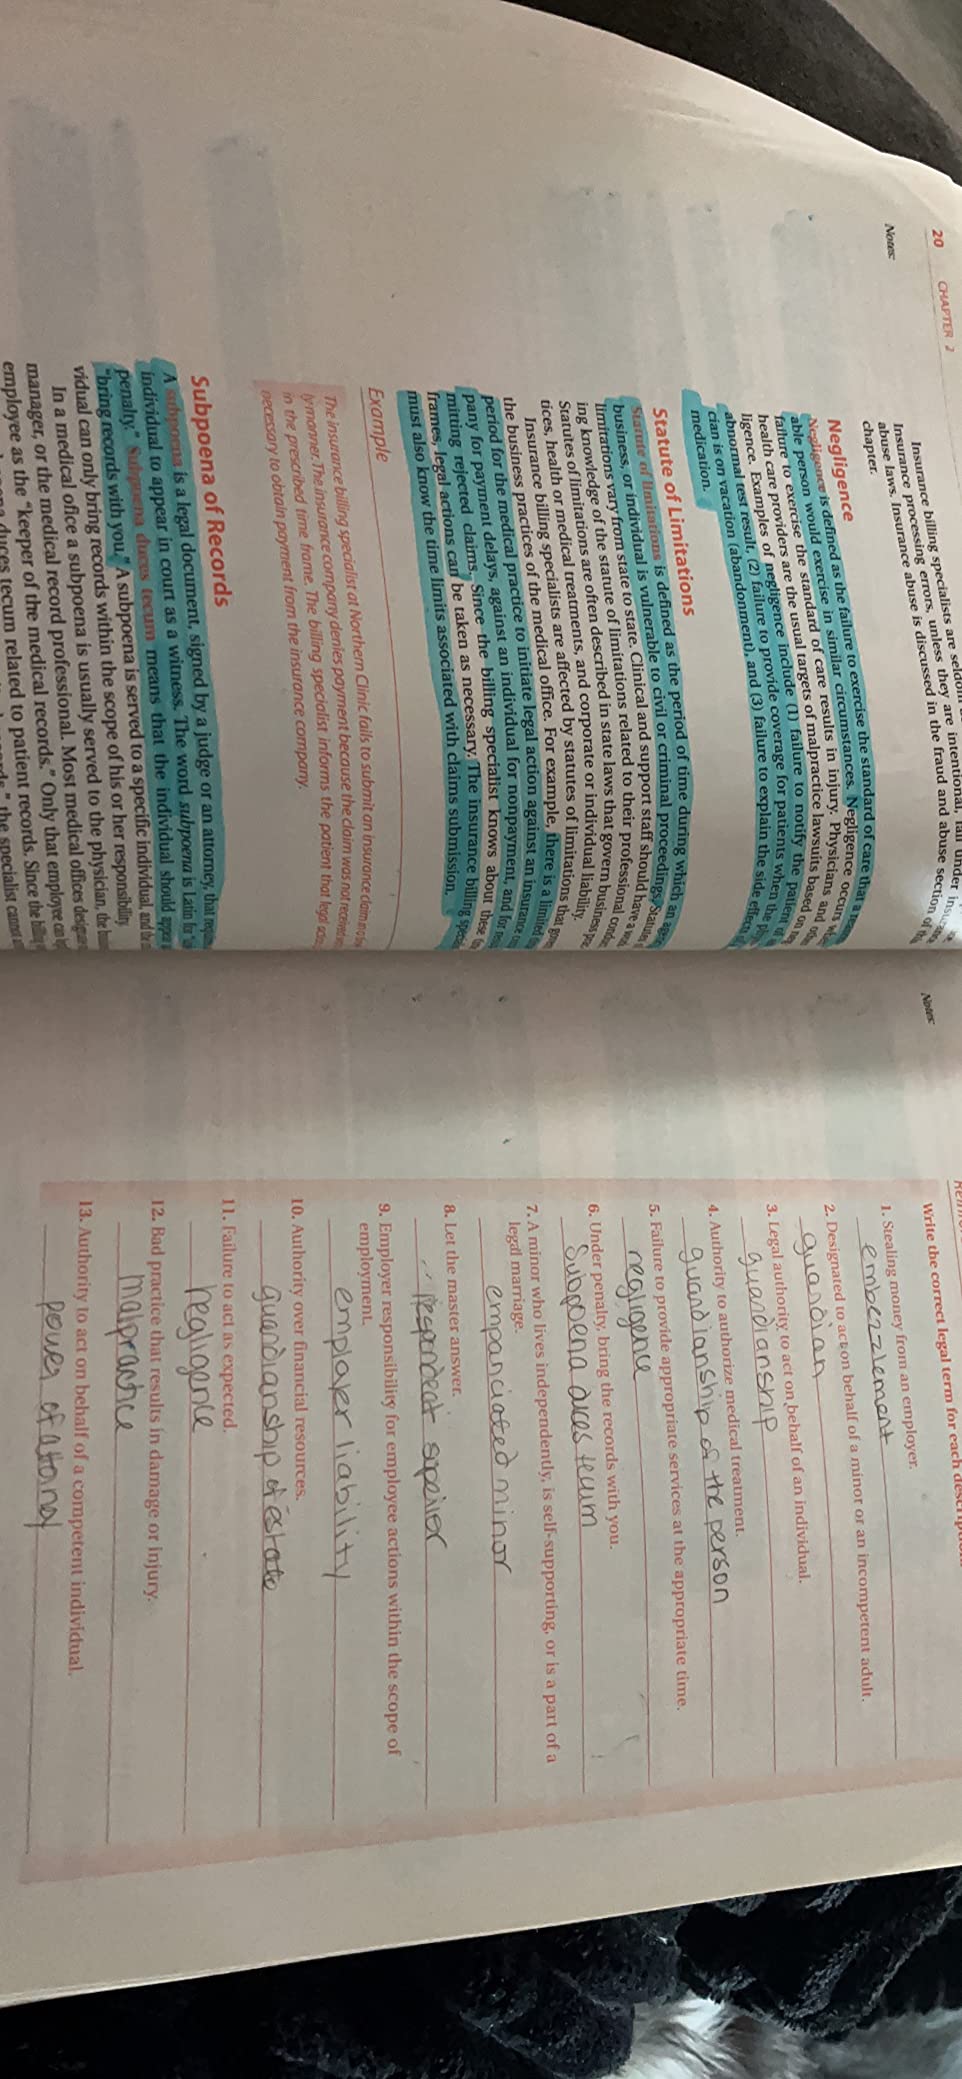 20 CHAPTER 2
Notes:
Insurance billing specialists are
Insurance processing errors, unless they are intentional, fall under
abuse laws. Insurance abuse is discussed in the fraud and abuse section of
chapter.
Negligence
Negligence is defined as the failure to exercise the standard of care that a
able person would exercise in similar circumstances. Negligence occurs
failure to exercise the standard of care results in injury. Physicians and
health care providers are the usual targets of malpractice lawsuits based on
ligence. Examples of negligence include (1) failure to notify the patient of
abnormal test result, (2) failure to provide coverage for patients when the
cian is on vacation (abandonment), and (3) failure to explain the side effects
medication.
Statute of Limitations
Statute of limitations is defined as the period of time during which an
business, or individual is vulnerable to civil or criminal proceedings. Statutes
limitations vary from state to state. Clinical and support staff should have a
ing knowledge of the statute of limitations related to their professional
Statutes of limitations are often described in state laws that govern business
tices, health or medical treatments, and corporate or individual liability.
Insurance billing specialists are affected by statutes of limitations that
the business practices of the medical office. For example, there is a limited
period for the medical practice to initiate legal action against an insurance
pany for payment delays, against an individual for nonpayment, and for
mitting rejected claims. Since the billing specialist knows about these
frames, legal actions can be taken as necessary. The insurance billing
must also know the time limits associated with claims submission.
Example
The insurance billing specialist at Northern Clinic fails to submit an insurance claim in a
ly manner. The insurance company denies payment because the claim was not received
in the prescribed time frame. The billing specialist informs the patient that legal
necessary to obtain payment from the insurance company.
Subpoena of Records
A subpoena is a legal document, signed by a judge or an attorney, that
individual to appear in court as a witness. The word subpoena is Latin for
penalty." Subpoena duces tecum means that the individual should appear
"bring records with you." A subpoena is served to a specific individual, and
vidual can only bring records within the scope of his or her responsibility.
In a medical office a subpoena is usually served to the physician, the
manager, or the medical record professional. Most medical offices
employee as the "keeper of the medical records." Only that employee can
duces tecum related to patient records. Since the
the specialist cannot
Notes:
Write the correct legal term for each
1. Stealing money from an employer.
embezzlement
2. Designated to act on behalf of a minor or an incompetent adult.
guardian
3. Legal authority to act on behalf of an individual.
guardianship
4. Authority to authorize medical treatment.
guardianship of the person
5. Failure to provide appropriate services at the appropriate time.
negligence
6. Under penalty, bring the records with you.
Subpoena duces tecum
7. A minor who lives independently, is self-supporting, or is a part of a
legal marriage.
empancicated minor
8. Let the master answer.
Respondeat suppior
9. Employer responsibility for employee actions within the scope of
employment.
employer liability
10. Authority over financial resources.
guardianship of estate
11. Failure to act as expected.
negligance
12. Bad practice that results in damage or injury.
Malpractice
13. Authority to act on behalf of a competent individual.
power of attoney